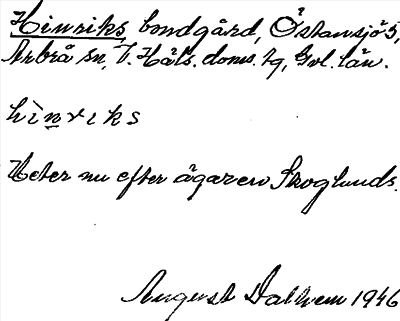 Hinriks, bondgård, Östansjö 5,
Arbrå sn, V. Häls. doms. hg, Gvl. län.
hìnriks
Heter nu efter ägaren Skoglunds.
August Dalhem 1946